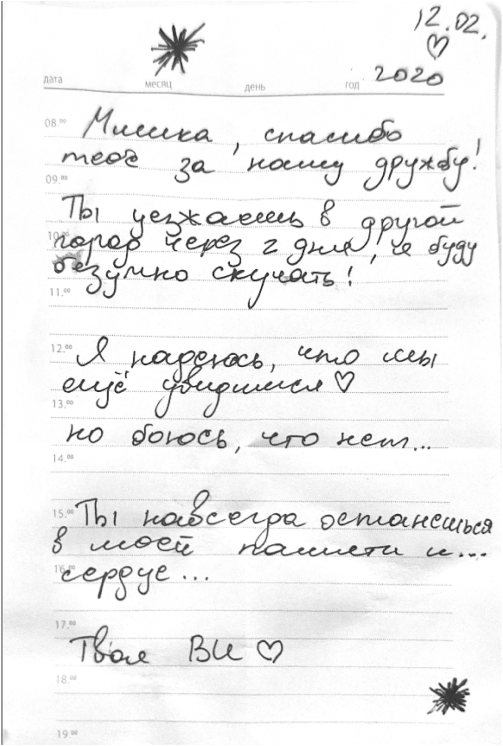 12.02.
♡
2020
дата месяц день год
08.⁰⁰
Мишка, спасибо
тебе за нашу дружбу!
09.⁰⁰
Ты уезжаешь в другой
10.⁰⁰
город через 2 дня, я буду
безумно скучать!
11.⁰⁰
12.⁰⁰
Я надеюсь, что мы
ещё увидимся ♡
13.⁰⁰
но боюсь, что нет...
14.⁰⁰
15.⁰⁰
Ты навсегда останешься
в моей памяти и...
16.⁰⁰
сердце...
17.⁰⁰
Твоя ВИ ♡
18.⁰⁰
19.⁰⁰